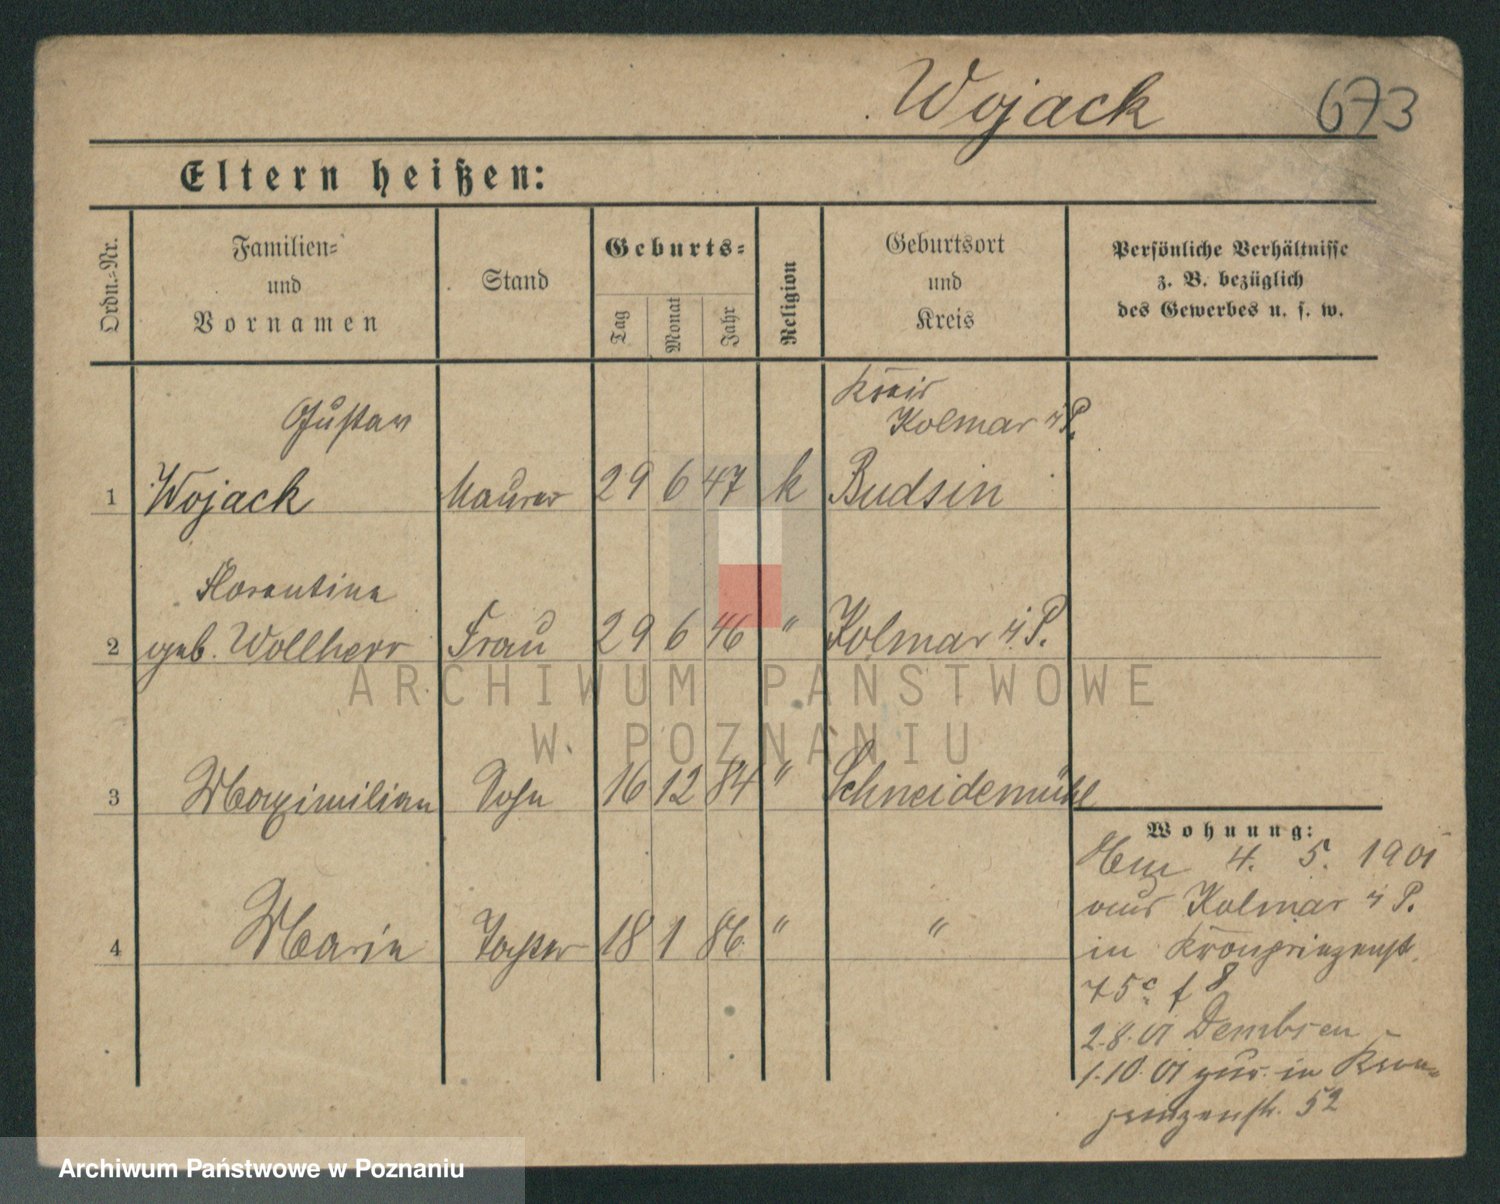 Wojack 673
Eltern heißen:
Ordn.-Nr.
Familien-
und
Vornamen
Stand
Geburts-
Tag
Monat
Jahr
Religion
Geburtsort
und
Kreis
Persönliche Verhältnisse
z. B. bezüglich
des Gewerbes u. s. w.
Gustav
Kreis
Kolmar i/P.
1 Wojack Maurer 29 6 47 k Budsin
Florentine
2 geb. Wollherr Frau 29 6 46 " Kolmar i. P.
3 Maximilian Sohn 16 12 84 " Schneidemühl
4 Marie Tochter 18 1 86 " "
Wohnung:
4. 5. 1901
aus Kolmar i P.
in Kronprinzenst.
75c f 8
2.8.01 Dembsen
1.10.01 zur. in Kron-
prinzenstr. 52
ARCHIWUM PAŃSTWOWE
W POZNANIU
Archiwum Państwowe w Poznaniu